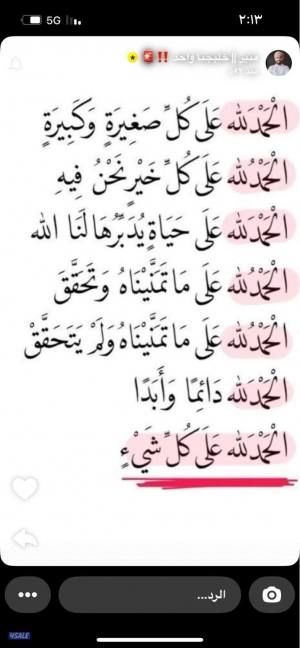 ٢:١٣
5G
خليجنا واحد
الْحَمْدُلله عَلَى كُلِّ صَغِيرَةٍ وَكَبِيرَةٍ
الْحَمْدُلله عَلَى كُلِّ خَيْرٍ نَحْنُ فِيهِ
الْحَمْدُلله عَلَى حَيَاةٍ يُدَبِّرُهَا لَنَا الله
الْحَمْدُلله عَلَى مَا تَمَنَّيْنَاهُ وَتَحَقَّقَ
الْحَمْدُلله عَلَى مَا تَمَنَّيْنَاهُ وَلَمْ يَتَحَقَّقْ
الْحَمْدُلله دَائِمًا وَأَبَدًا
الْحَمْدُلله عَلَى كُلِّ شَيْءٍ
الرد...
4SALE